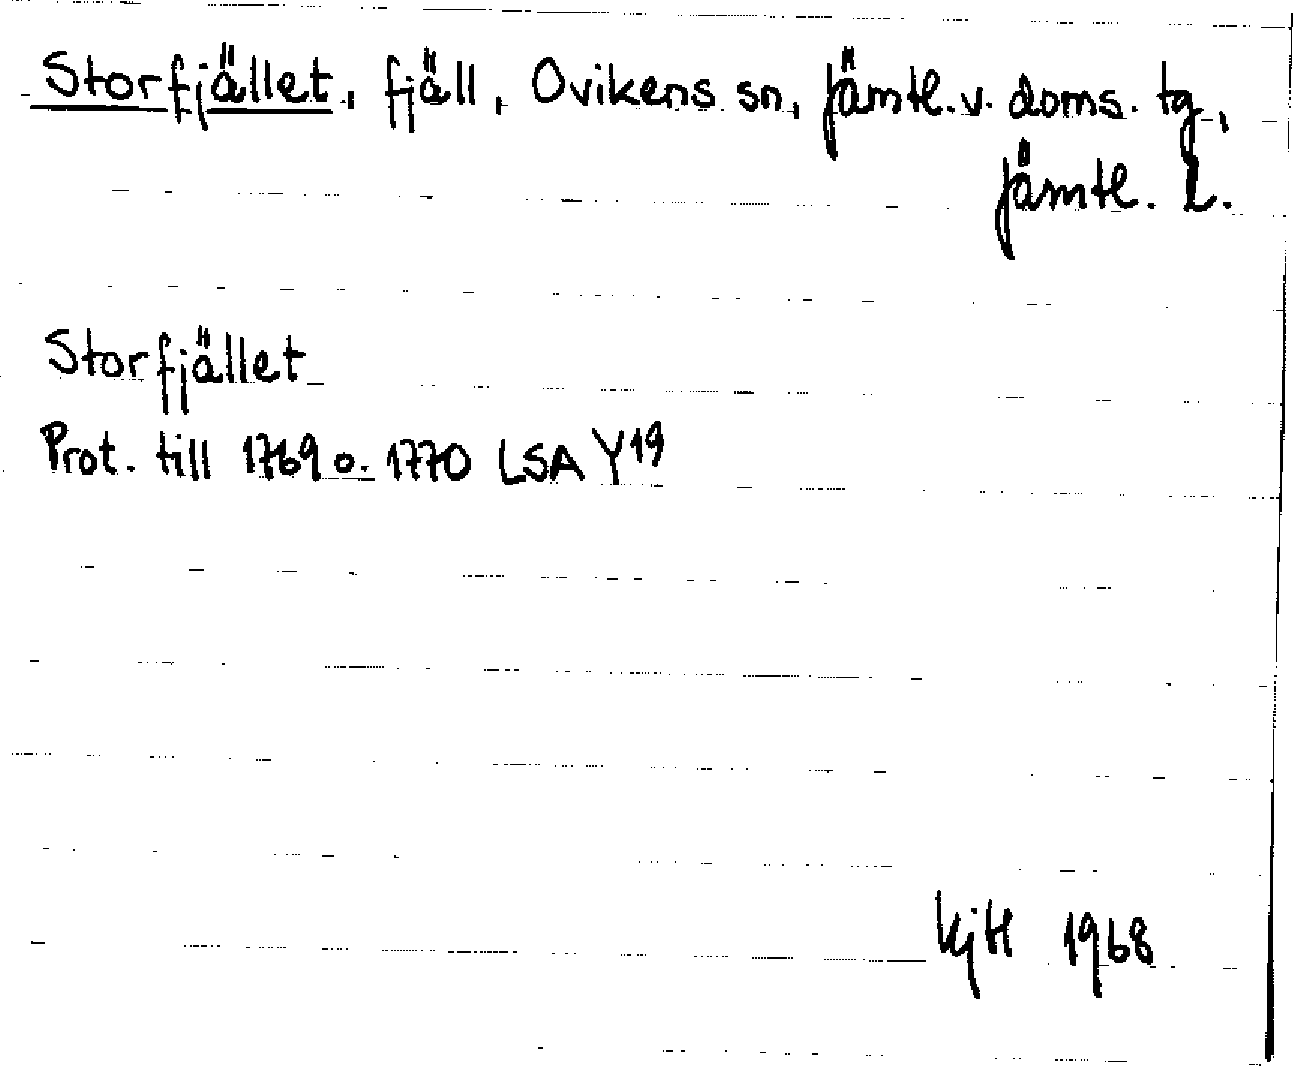 Storfjället, fjäll, Ovikens sn, Jämtl. v. doms. tg,
Jämtl. L.
Storfjället
Prot. till 1769 o. 1770 LSA Y19
KjH 1968